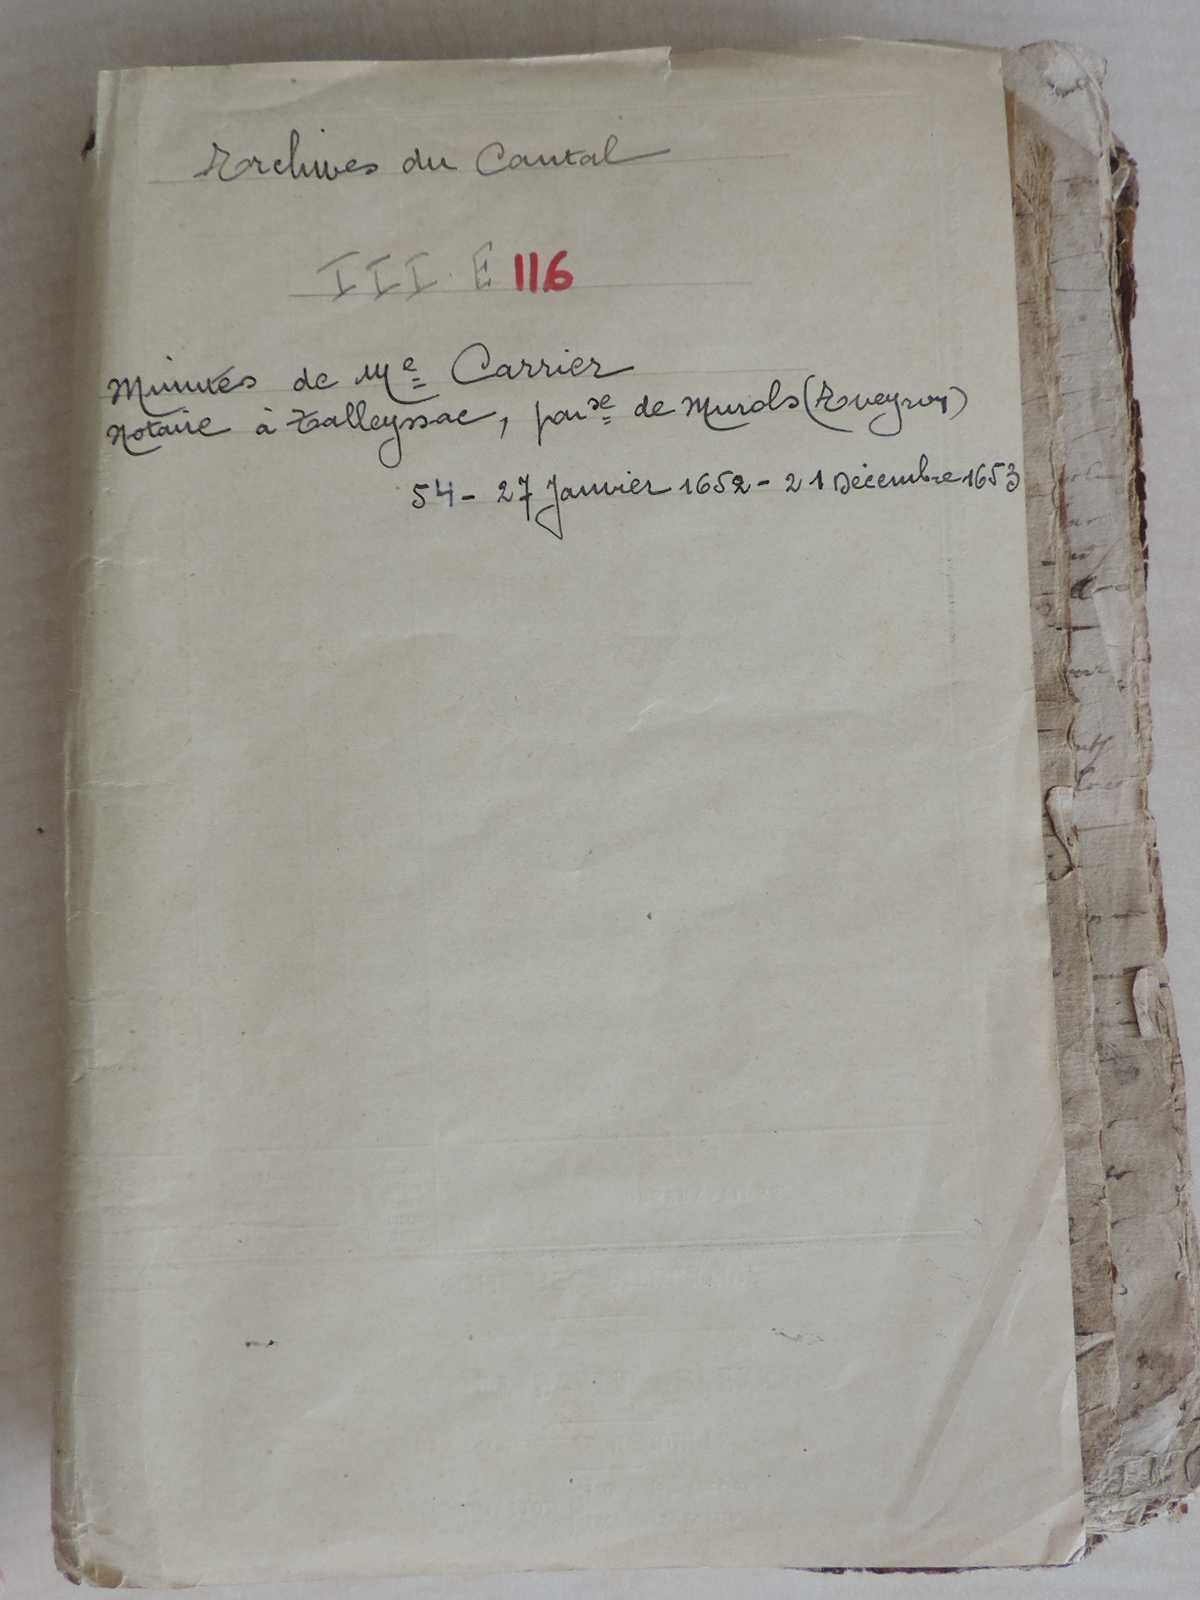 Archives du Cantal
III E 116
Minutes de Me Carrier
Notaire à Talleyssac, parsse de Murols (Aveyron)
54 - 27 Janvier 1652 - 21 Décembre 1653